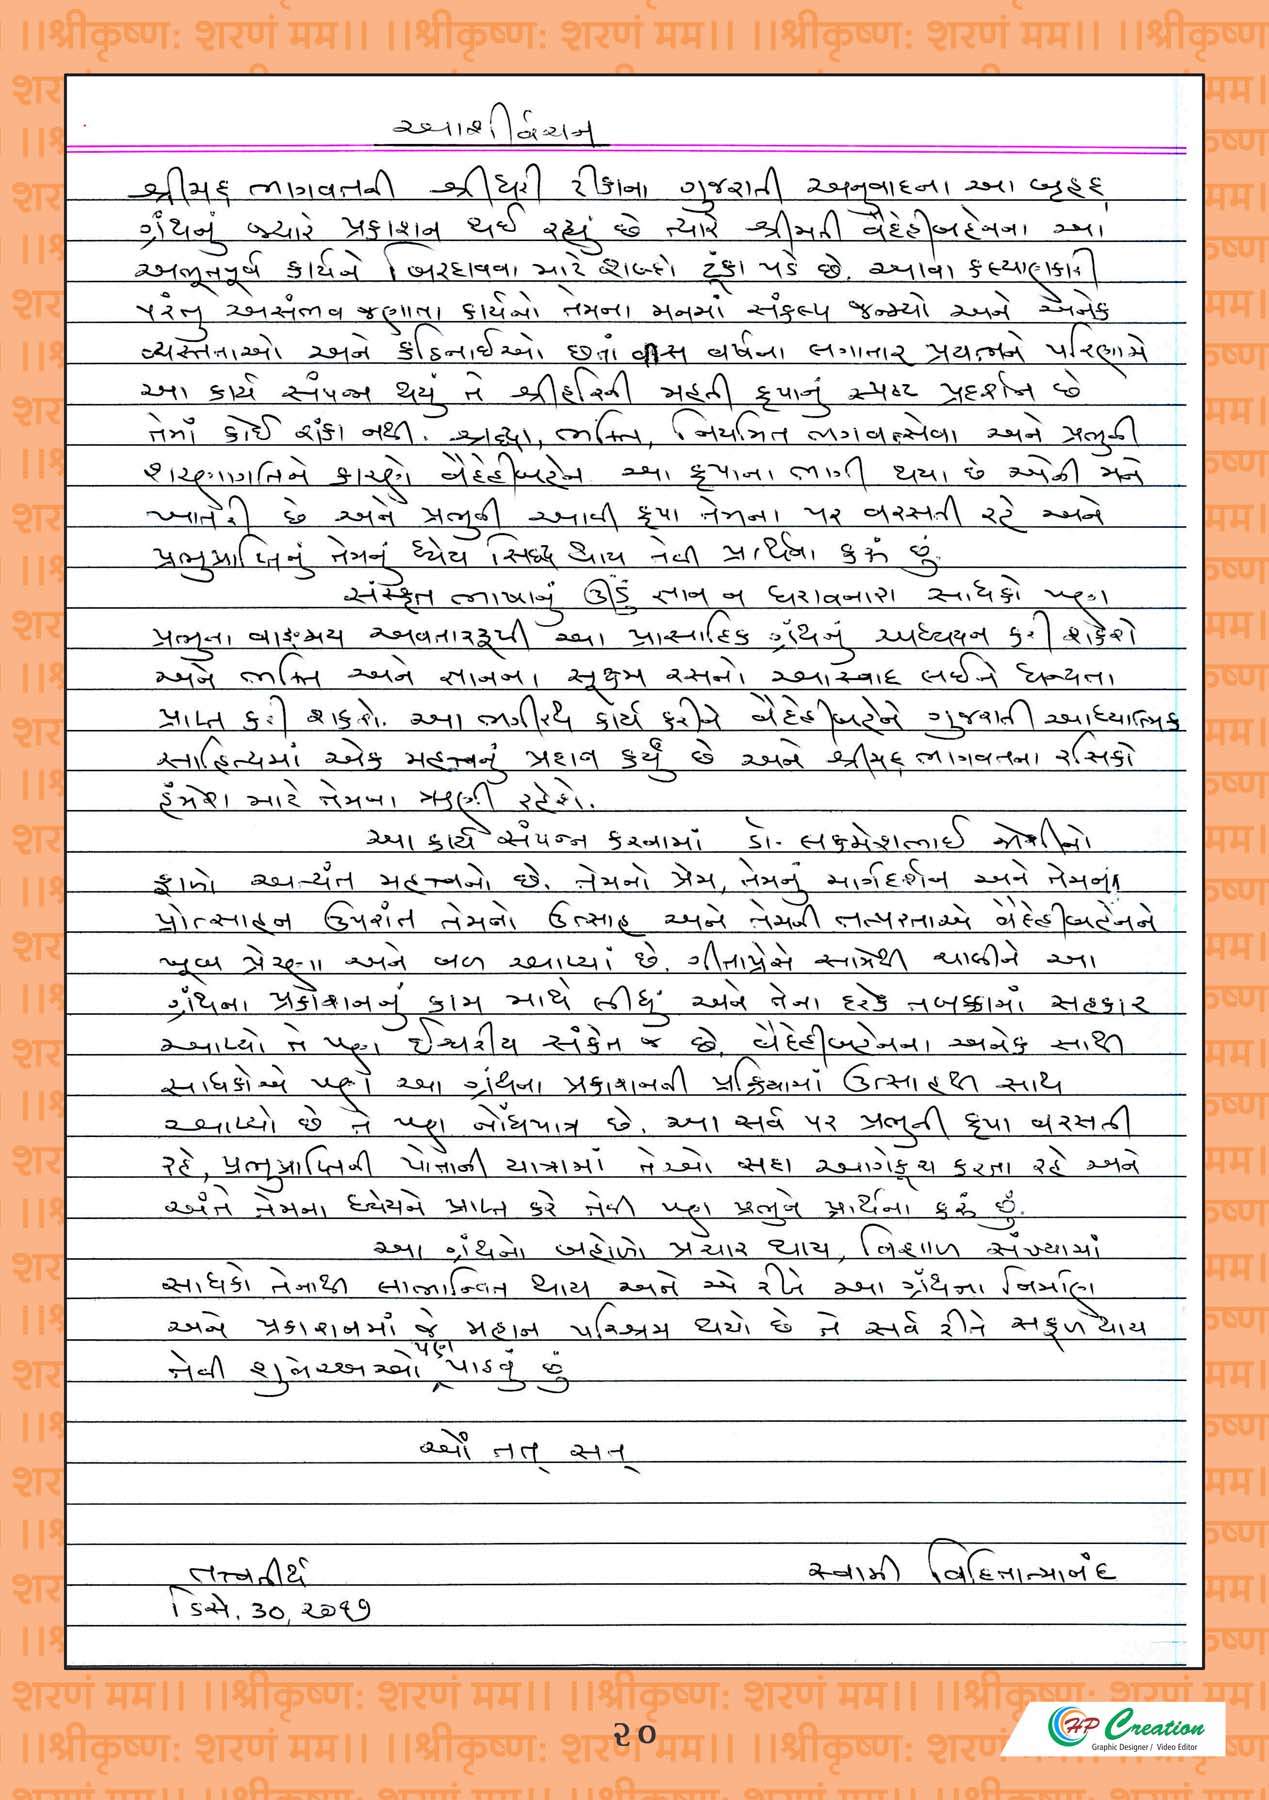 આશીર્વચન
શ્રીમદ્ ભાગવતની શ્રીધરી ટીકાના ગુજરાતી અનુવાદના આ બૃહદ્
ગ્રંથનું જ્યારે પ્રકાશન થઈ રહ્યું છે ત્યારે શ્રીમતી વૈદેહીબહેનના આ
અભૂતપૂર્વ કાર્યને બિરદાવવા માટે શબ્દો ટૂંકા પડે છે. આવા કલ્યાણકારી
પરંતુ અસંભવ જણાતા કાર્યનો તેમના મનમાં સંકલ્પ જન્મ્યો અને અનેક
વ્યસ્તતાઓ અને કઠિનાઈઓ છતાં વીસ વર્ષના લગાતાર પ્રયત્નને પરિણામે
આ કાર્ય સંપન્ન થયું તે શ્રીહરિની મહતી કૃપાનું સ્પષ્ટ પ્રદર્શન છે
તેમાં કોઈ શંકા નથી. શ્રદ્ધા, ભક્તિ, નિયમિત ભગવત્સેવા અને પ્રભુની
શરણાગતિને કારણે વૈદેહીબહેન આ કૃપાના ભાગી થયા છે એની મને
ખાતરી છે અને પ્રભુની આવી કૃપા તેમના પર વરસતી રહે અને
પ્રભુપ્રાપ્તિનું તેમનું ધ્યેય સિદ્ધ થાય તેવી પ્રાર્થના કરું છું.
સંસ્કૃત ભાષાનું ઊંડું જ્ઞાન ન ધરાવનારા સાધકો પણ
પ્રભુના વાઙ્મય અવતારરૂપી આ પ્રાસાદિક ગ્રંથનું અધ્યયન કરી શકશે
અને ભક્તિ અને જ્ઞાનના સૂક્ષ્મ રસનો આસ્વાદ લઈને ધન્યતા
પ્રાપ્ત કરી શકશે. આ ભગીરથ કાર્ય કરીને વૈદેહીબહેને ગુજરાતી આધ્યાત્મિક
સાહિત્યમાં એક મહત્ત્વનું પ્રદાન કર્યું છે અને શ્રીમદ્ ભાગવતના રસિકો
હંમેશ માટે તેમના ઋણી રહેશે.
આ કાર્ય સંપન્ન કરવામાં ડો. લક્ષ્મેશભાઈ જોશીનો
ફાળો અત્યંત મહત્ત્વનો છે. તેમનો પ્રેમ, તેમનું માર્ગદર્શન અને તેમના
પ્રોત્સાહન ઉપરાંત તેમનો ઉત્સાહ અને તેમની તત્પરતાએ વૈદેહીબહેનને
ખૂબ પ્રેરણા અને બળ આપ્યાં છે. ગીતાપ્રેસે સામેથી ચાલીને આ
ગ્રંથના પ્રકાશનનું કામ માથે લીધું અને તેના દરેક તબક્કામાં સહકાર
આપ્યો તે પણ ઈશ્વરીય સંકેત જ છે. વૈદેહીબહેનના અનેક સાથી
સાધકોએ પણ આ ગ્રંથના પ્રકાશનની પ્રક્રિયામાં ઉત્સાહથી સાથ
આપ્યો છે તે પણ નોંધપાત્ર છે. આ સર્વ પર પ્રભુની કૃપા વરસતી
રહે, પ્રભુપ્રાપ્તિની પોતાની યાત્રામાં તેઓ સદા આગેકૂચ કરતા રહે અને
અંતે તેમના ધ્યેયને પ્રાપ્ત કરે તેવી પણ પ્રભુને પ્રાર્થના કરું છું.
આ ગ્રંથનો બહોળો પ્રચાર થાય, વિશાળ સંખ્યામાં
સાધકો તેનાથી લાભાન્વિત થાય અને એ રીતે આ ગ્રંથના નિર્માણ
અને પ્રકાશનમાં જે મહાન પરિશ્રમ થયો છે તે સર્વ રીતે સફળ થાય
તેવી શુભેચ્છાઓ પણ પાઠવું છું
ઓં તત્ સત્
તત્ત્વતીર્થ
ડિસે. ૩૦, ૨૦૧૭
સ્વામી વિદિતાત્માનંદ
૨૦
HP Creation
Graphic Designer / Video Editor